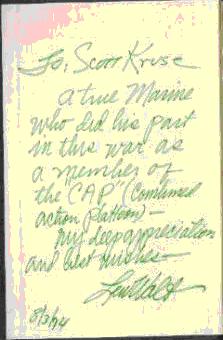 To, Scott Kruse
A true Marine
who did his part
in this war as
a member of
the "CAP" (Combined
action platoon) -
My deep appreciation
and best wishes -
Lew Walt